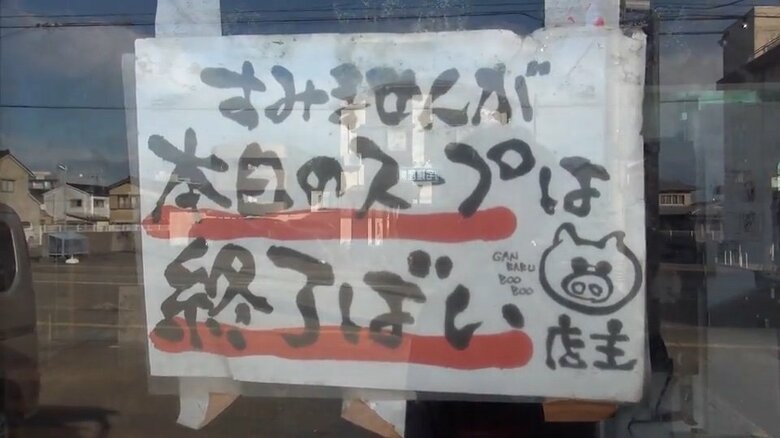 すみませんが
本日のスープは
終了ぼい、
GAN
BARU
BOO
BOO
店主